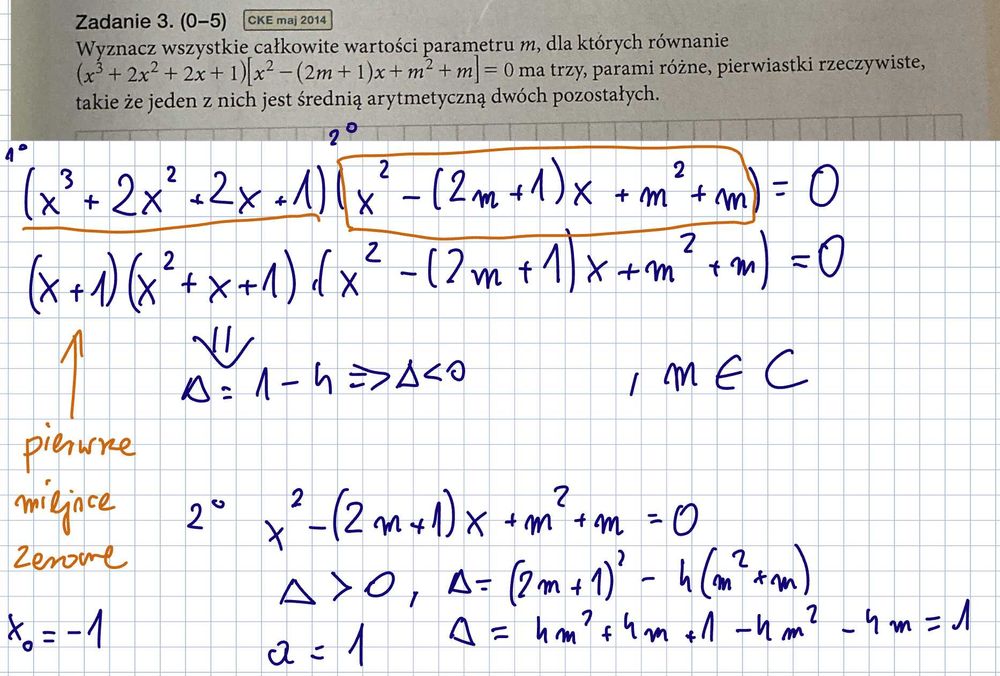 Zadanie 3. (0–5) CKE maj 2014
Wyznacz wszystkie całkowite wartości parametru m, dla których równanie
(x³ + 2x² + 2x + 1)[x² – (2m + 1)x + m² + m] = 0 ma trzy, parami różne, pierwiastki rzeczywiste,
takie że jeden z nich jest średnią arytmetyczną dwóch pozostałych.
1° 2°
(x³ + 2x² + 2x + 1)(x² – (2m + 1)x + m² + m) = 0
(x + 1)(x² + x + 1)·(x² – (2m + 1)x + m² + m) = 0
Δ = 1 – 4 => Δ < 0 , m ∈ C
pierwsze
miejsce
zerowe
x₀ = –1
2° x² – (2m + 1)x + m² + m = 0
Δ > 0, Δ = (2m + 1)² – 4(m² + m)
a = 1 Δ = 4m² + 4m + 1 – 4m² – 4m = 1